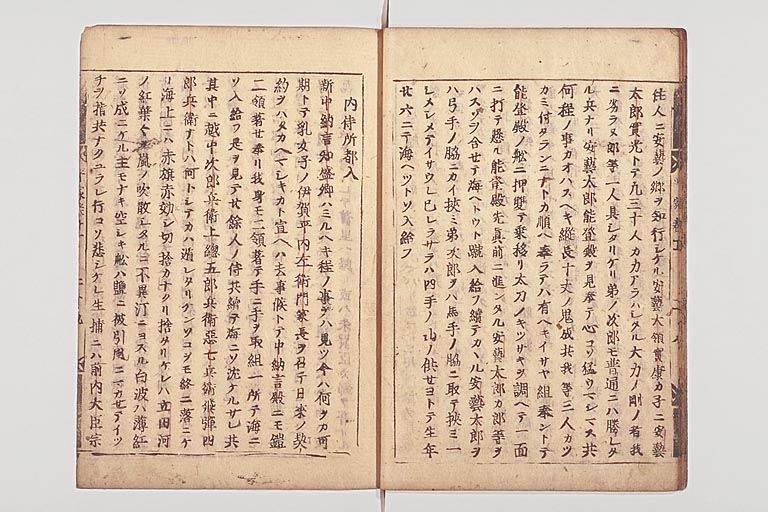 住人ニ安藝ノ郷ヲ知行シケル安藝大領實康カ子ニ安藝
太郎實光トテ凡三十人カ力アラハレタル大力ノ剛ノ者我
ニ劣ラヌ郎等一人具シタリケリ弟ノ次郎モ普通ニハ勝レタ
ル兵ナリ安藝太郎能登殿ヲ見奉テ心コソ猛ウマシマス共
何程ノ事カオハスヘキ縦長十丈ノ鬼成共我等三人カツ
カミ付タランニナトカ順ヘ奉ラテハ有ヘキイサヤ組奉ントテ
能登殿ノ舩ニ押雙テ乗移リ太刀ノキツサキヲ調ヘテ一面
ニ打テ懸ル能登殿先真前ニ進ンタル安藝太郎カ郎等ヲ
スソヲ合セテ海ヘトウト蹴入給フ續テカヽル安藝太郎ヲ
ハ弓手ノ脇ニカイ挾ミ弟次郎ヲハ馬手ノ脇ニ取テ挾ミ一
シメシメテイサウレ己レラサラハ四手ノ山ノ供セヨトテ生年
廿六ニテ海ヘツトソ入給フ
内侍所都入
新中納言知盛卿ハミルヘキ程ノ事ヲハ見ツ今ハ何ヲカ可
期トテ乳女子ノ伊賀平内左衛門家長ヲ召テ日来ノ契
約ヲハタカヘマシキカト宣ヘハ去事候トテ中納言殿ニモ鎧
二領著セ奉リ我身モ二領著テ手ニ手ヲ取組一所テ海ニ
ソ入給フ是ヲ見テ廿余人ノ侍共續テ海ニソ沈ケルサレ共
其中ニ越中次郎兵衛上總五郎兵衛惡七兵衛飛彈四
郎兵衛ナトハ何トシテカハ遁レタリケンソコヲモ終ニ落ニケ
リ海上ニハ赤旗赤効シ切捨カナクリ捨タリケレハ立田河
ノ紅葉々ヲ嵐ノ吹散シタルニ不異汀ニヨスル白波ハ薄紅
ニソ成ニケル主モナキ空シキ舩ハ鹽ニ被引風ニマカセテイツ
チヲ指共ナクユラレ行コソ悲シケレ生捕ニハ前内大臣宗